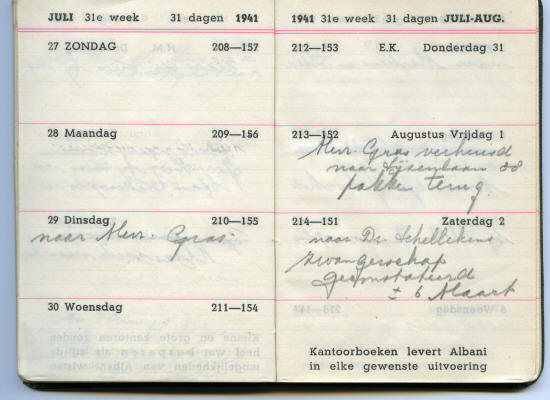 JULI 31e week 31 dagen 1941
27 ZONDAG 208—157
28 Maandag 209—156
29 Dinsdag 210—155
naar Mevr. Gras.
30 Woensdag 211—154
1941 31e week 31 dagen JULI-AUG.
212—153 E.K. Donderdag 31
213—152 Augustus Vrijdag 1
Mevr. Gras verhuisd
naar 38
pakken terug.
214—151 Zaterdag 2
naar Dr. Schellekens
zwangerschap
geconstateerd
± 6 Maart
Kantoorboeken levert Albani
in elke gewenste uitvoering